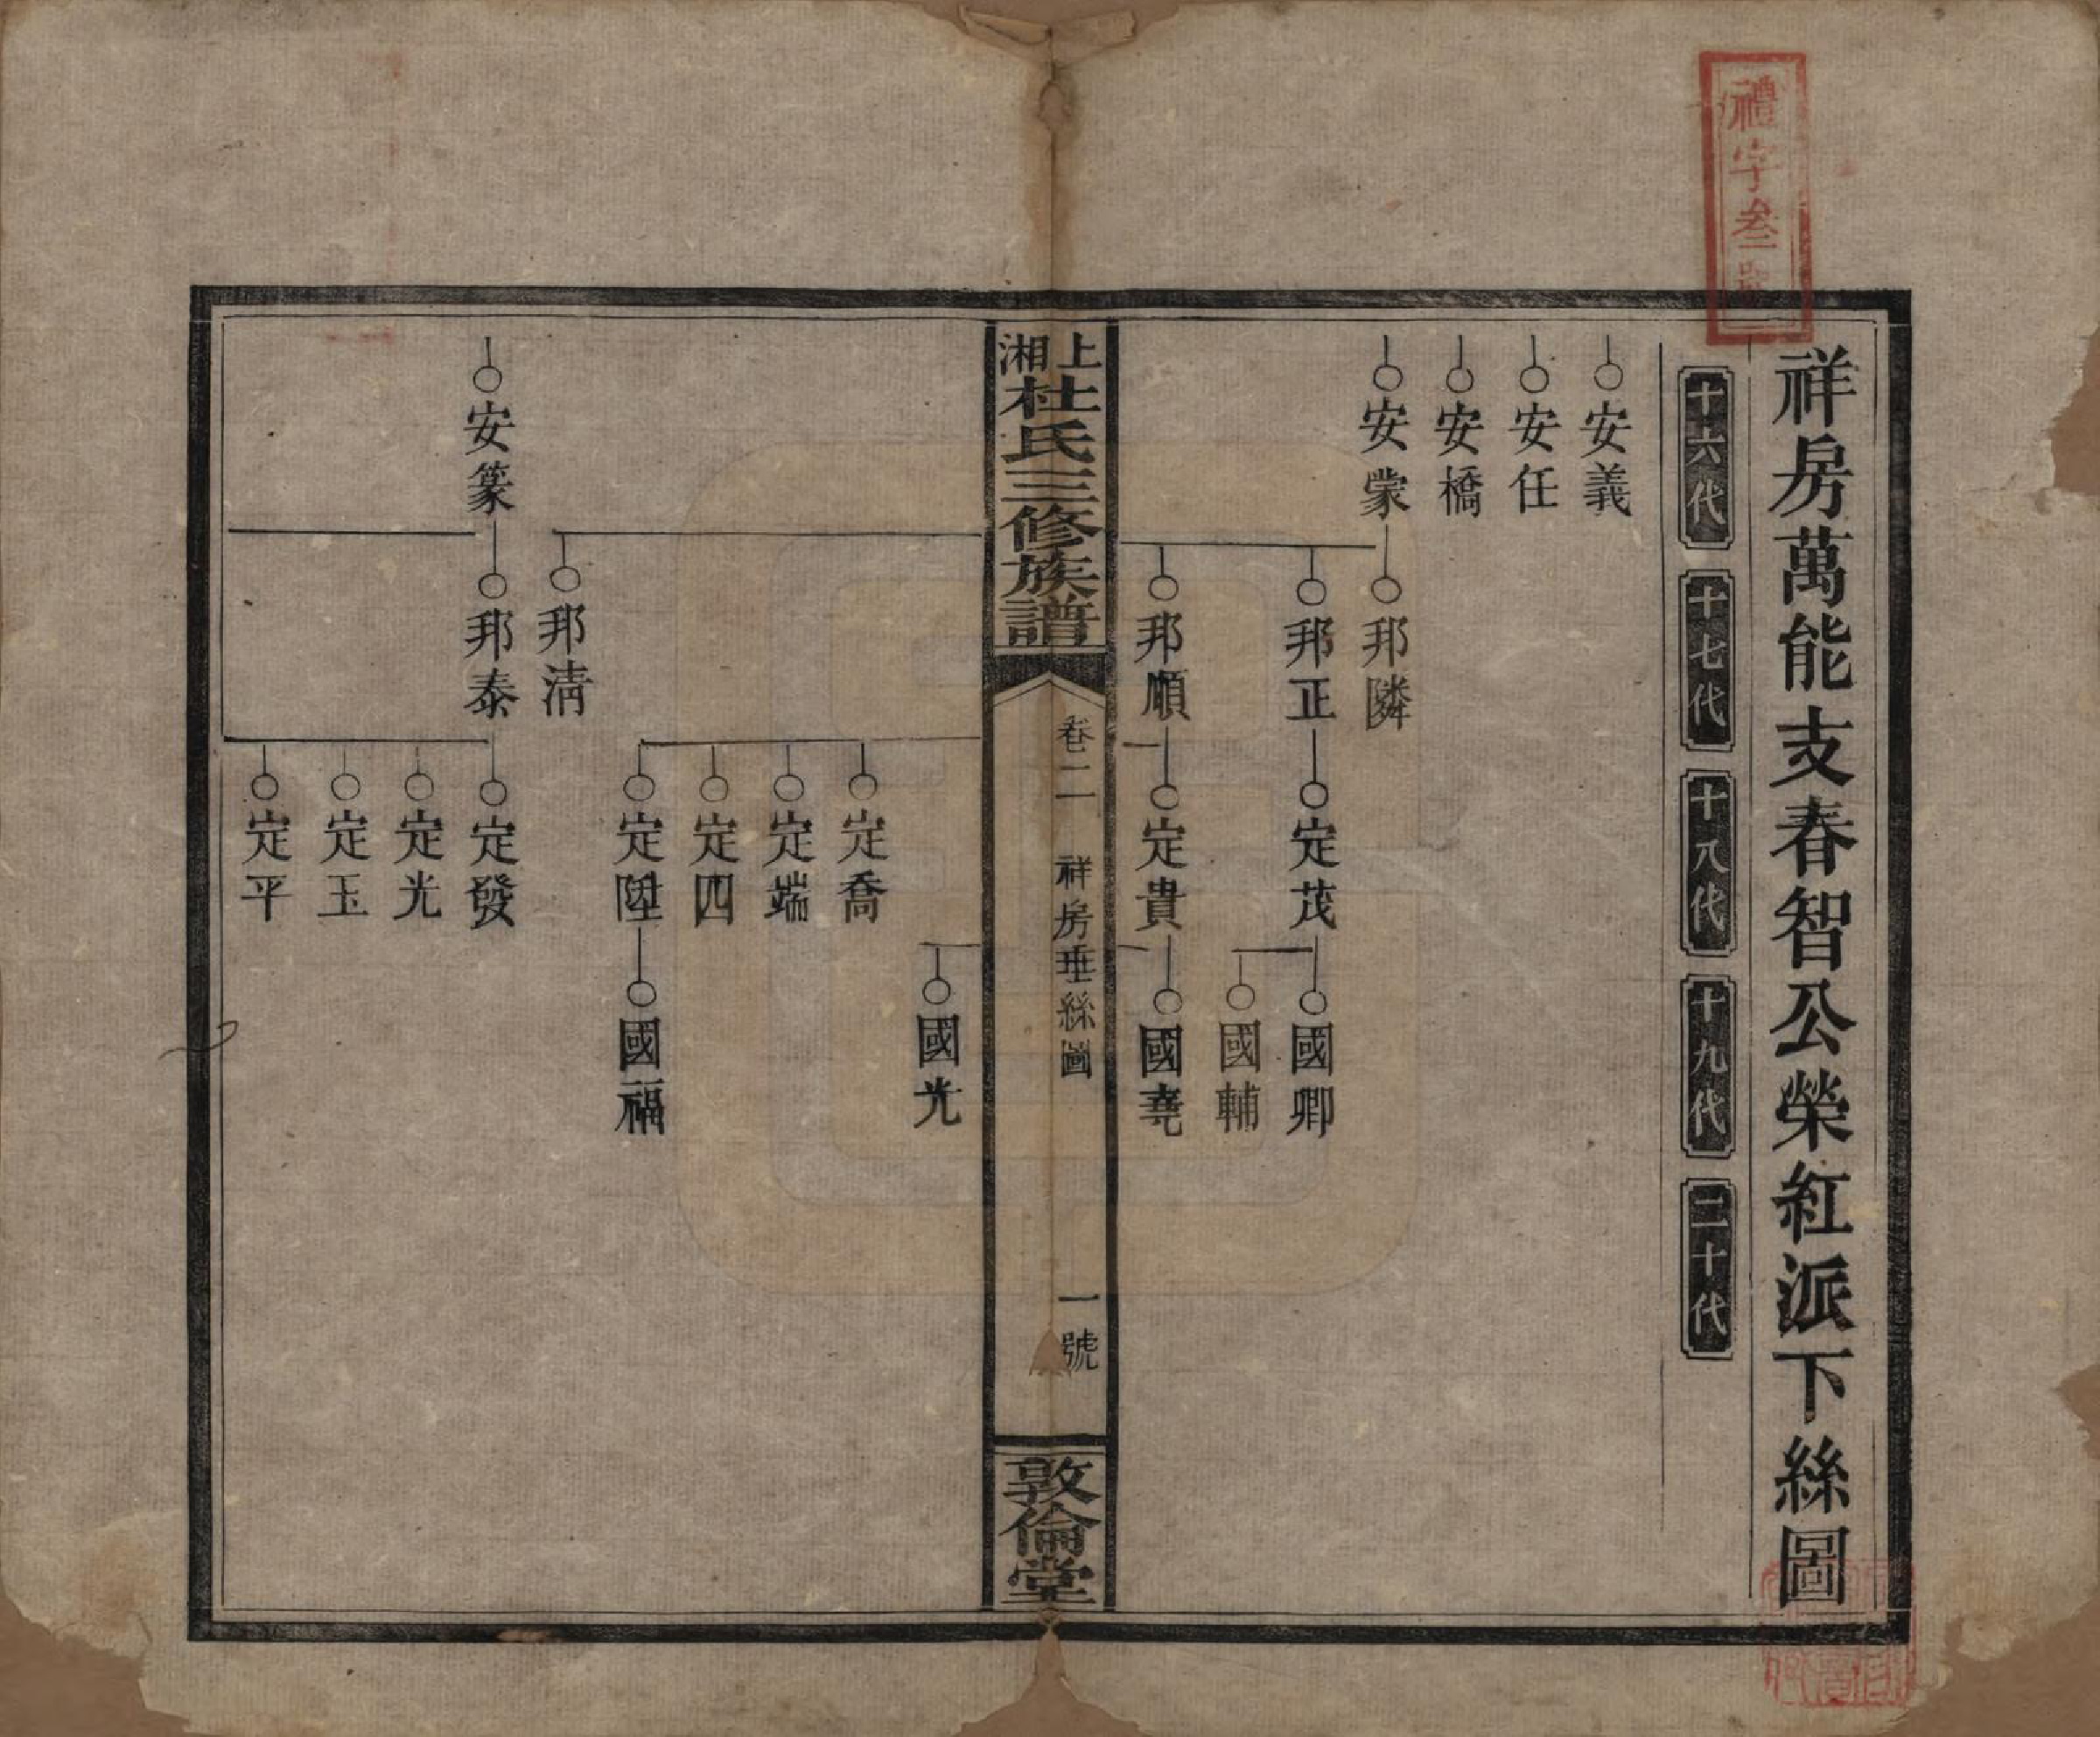 禮字叁號
祥房萬能支春智公榮紅派下絲圖
十六代
十七代
十八代
十九代
二十代
安義
安任
安橋
安蒙
邦隣
邦正
定茂
國卿
國輔
邦順
定貴
國堯
上湘杜氏三修族譜
卷二
祥房垂絲圖
一號
敦倫堂
國光
定喬
定端
定四
定陞
國福
邦清
安篆
邦泰
定發
定光
定玉
定平